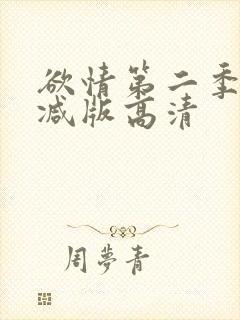 欲情第二季
减版高清
周夢青